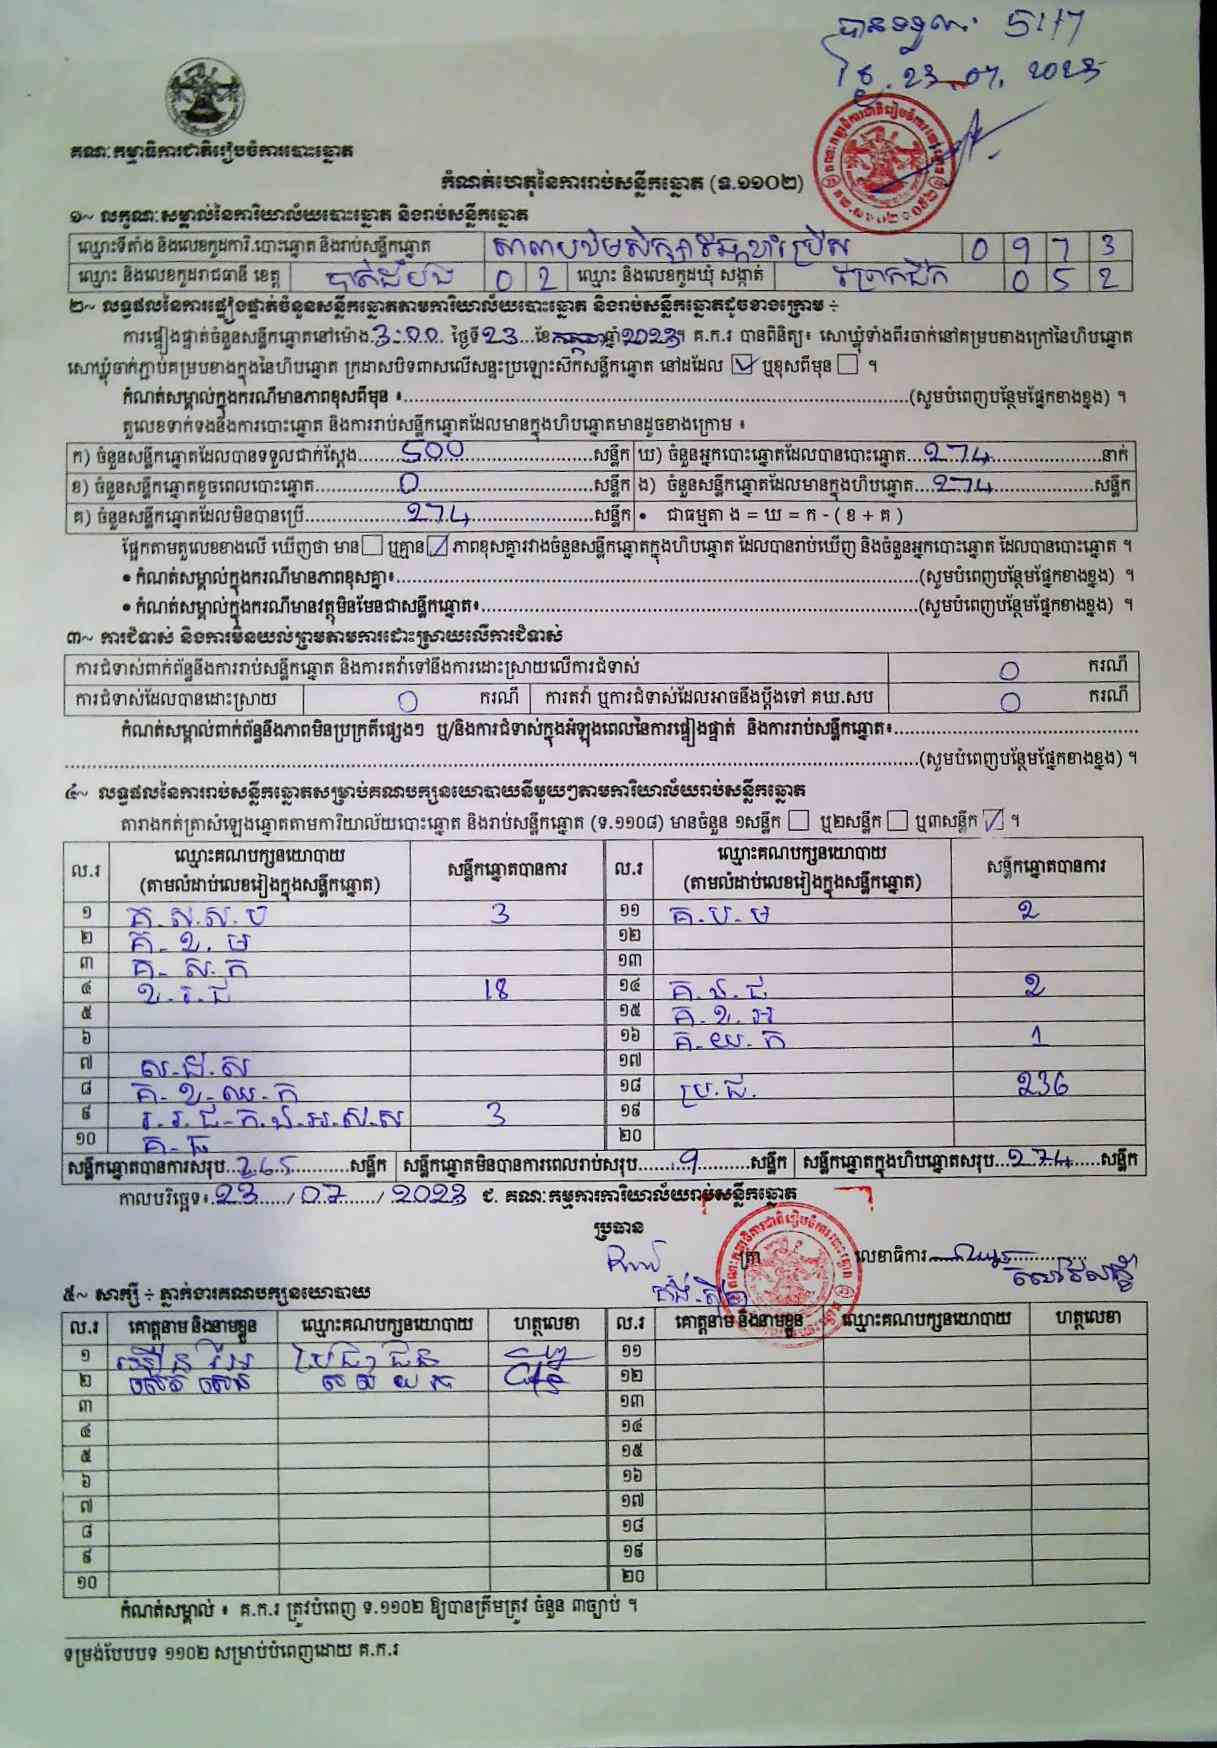 បានទទួល 5:17
ថ្ងៃ 23.07.2023
គណៈកម្មាធិការជាតិរៀបចំការបោះឆ្នោត
កំណត់ហេតុនៃការរាប់សន្លឹកឆ្នោត (ទ.១១០២)
១~ លក្ខណៈសម្គាល់នៃការិយាល័យបោះឆ្នោត និងរាប់សន្លឹកឆ្នោត
ឈ្មោះទីតាំង និងលេខកូដការិ.បោះឆ្នោត និងរាប់សន្លឹកឆ្នោត សាលាបឋមសិក្សា 0 9 7 3
ឈ្មោះ និងលេខកូដរាជធានី ខេត្ត បាត់ដំបង 0 2 ឈ្មោះ និងលេខកូដឃុំ សង្កាត់ ព្រែកជីក 0 5 2
២~ លទ្ធផលនៃការផ្ទៀងផ្ទាត់ចំនួនសន្លឹកឆ្នោតតាមការិយាល័យបោះឆ្នោត និងរាប់សន្លឹកឆ្នោតដូចខាងក្រោម ÷
ការផ្ទៀងផ្ទាត់ចំនួនសន្លឹកឆ្នោតនៅម៉ោង.3:00. ថ្ងៃទី23...ខែកក្កដាឆ្នាំ2023។ គ.ក.រ បានពិនិត្យ៖ សោឃ្លុំទាំងពីរចាក់នៅគម្របខាងក្រៅនៃហិបឆ្នោត
សោឃ្លុំចាក់ភ្ជាប់គម្របខាងក្នុងនៃហិបឆ្នោត ក្រដាសបិទពាសលើសន្ទះប្រឡោះស៊កសន្លឹកឆ្នោត នៅដដែល ☑ ឬខុសពីមុន ☐ ។
កំណត់សម្គាល់ក្នុងករណីមានភាពខុសពីមុន ៖..........(សូមបំពេញបន្ថែមផ្នែកខាងខ្នង) ។
តួលេខទាក់ទងនឹងការបោះឆ្នោត និងការរាប់សន្លឹកឆ្នោតដែលមានក្នុងហិបឆ្នោតមានដូចខាងក្រោម ៖
ក) ចំនួនសន្លឹកឆ្នោតដែលបានទទួលជាក់ស្តែង......500......សន្លឹក ឃ) ចំនួនអ្នកបោះឆ្នោតដែលបានបោះឆ្នោត...274......នាក់
ខ) ចំនួនសន្លឹកឆ្នោតខូចពេលបោះឆ្នោត......0......សន្លឹក ង) ចំនួនសន្លឹកឆ្នោតដែលមានក្នុងហិបឆ្នោត....274......សន្លឹក
គ) ចំនួនសន្លឹកឆ្នោតដែលមិនបានប្រើ......274......សន្លឹក • ជាធម្មតា ង = ឃ = ក - ( ខ + គ )
ផ្អែកតាមតួលេខខាងលើ ឃើញថា មាន ☐ ឬគ្មាន ☑ ភាពខុសគ្នារវាងចំនួនសន្លឹកឆ្នោតក្នុងហិបឆ្នោត ដែលបានរាប់ឃើញ និងចំនួនអ្នកបោះឆ្នោត ដែលបានបោះឆ្នោត ។
• កំណត់សម្គាល់ក្នុងករណីមានភាពខុសគ្នា៖..........(សូមបំពេញបន្ថែមផ្នែកខាងខ្នង) ។
• កំណត់សម្គាល់ក្នុងករណីមានវត្ថុមិនមែនជាសន្លឹកឆ្នោត៖..........(សូមបំពេញបន្ថែមផ្នែកខាងខ្នង) ។
៣~ ការជំទាស់ និងការមិនយល់ព្រមតាមការដោះស្រាយលើការជំទាស់
ការជំទាស់ពាក់ព័ន្ធនឹងការរាប់សន្លឹកឆ្នោត និងការតវ៉ាទៅនឹងការដោះស្រាយលើការជំទាស់ 0 ករណី
ការជំទាស់ដែលបានដោះស្រាយ 0 ករណី ការតវ៉ា ឬការជំទាស់ដែលអាចនឹងប្តឹងទៅ គឃ.សប 0 ករណី
កំណត់សម្គាល់ពាក់ព័ន្ធនឹងភាពមិនប្រក្រតីផ្សេងៗ ឬ/និងការជំទាស់ក្នុងអំឡុងពេលនៃការផ្ទៀងផ្ទាត់ និងការរាប់សន្លឹកឆ្នោត៖..........
..........(សូមបំពេញបន្ថែមផ្នែកខាងខ្នង) ។
៤~ លទ្ធផលនៃការរាប់សន្លឹកឆ្នោតសម្រាប់គណបក្សនយោបាយនីមួយៗតាមការិយាល័យរាប់សន្លឹកឆ្នោត
តារាងកត់ត្រាសំឡេងឆ្នោតតាមការិយាល័យបោះឆ្នោត និងរាប់សន្លឹកឆ្នោត (ទ.១១០៨) មានចំនួន ១សន្លឹក ☐ ឬ២សន្លឹក ☐ ឬ៣សន្លឹក ☑ ។
ល.រ ឈ្មោះគណបក្សនយោបាយ (តាមលំដាប់លេខរៀងក្នុងសន្លឹកឆ្នោត) សន្លឹកឆ្នោតបានការ ល.រ ឈ្មោះគណបក្សនយោបាយ (តាមលំដាប់លេខរៀងក្នុងសន្លឹកឆ្នោត) សន្លឹកឆ្នោតបានការ
១ គ.ស.ស.ប 3 ១១ គ.ប.ម 2
២ គ.ខ.ម ១២
៣ គ.ស.ក ១៣
៤ ខ.រ.ជ 18 ១៤ គ.ង.ជ 2
៥ ១៥ គ.ខ.អ
៦ ១៦ គ.យ.ក 1
៧ ស.ជ.ស ១៧
៨ គ.ខ.ឈ.ក ១៨ ប្រ.ជ. 236
៩ រ.រ.ជ.ក.ង.អ.ស.ស 3 ១៩
១០ គ.ធ ២០
សន្លឹកឆ្នោតបានការសរុប..265......សន្លឹក សន្លឹកឆ្នោតមិនបានការពេលរាប់សរុប......9......សន្លឹក សន្លឹកឆ្នោតក្នុងហិបឆ្នោតសរុប..274......សន្លឹក
កាលបរិច្ឆេទ៖.23....../.07....../ 2023 ជ. គណៈកម្មការការិយាល័យរាប់សន្លឹកឆ្នោត
ប្រធាន
ត្រា លេខាធិការ
៥~ សាក្សី ÷ ភ្នាក់ងារគណបក្សនយោបាយ
ល.រ គោត្តនាម និងនាមខ្លួន ឈ្មោះគណបក្សនយោបាយ ហត្ថលេខា ល.រ គោត្តនាម និងនាមខ្លួន ឈ្មោះគណបក្សនយោបាយ ហត្ថលេខា
១ ប្រជាជន ១១
២ ១២
៣ ១៣
៤ ១៤
៥ ១៥
៦ ១៦
៧ ១៧
៨ ១៨
៩ ១៩
១០ ២០
កំណត់សម្គាល់ ៖ គ.ក.រ ត្រូវបំពេញ ទ.១១០២ ឱ្យបានត្រឹមត្រូវ ចំនួន ៣ច្បាប់ ។
ទម្រង់បែបបទ ១១០២ សម្រាប់បំពេញដោយ គ.ក.រ